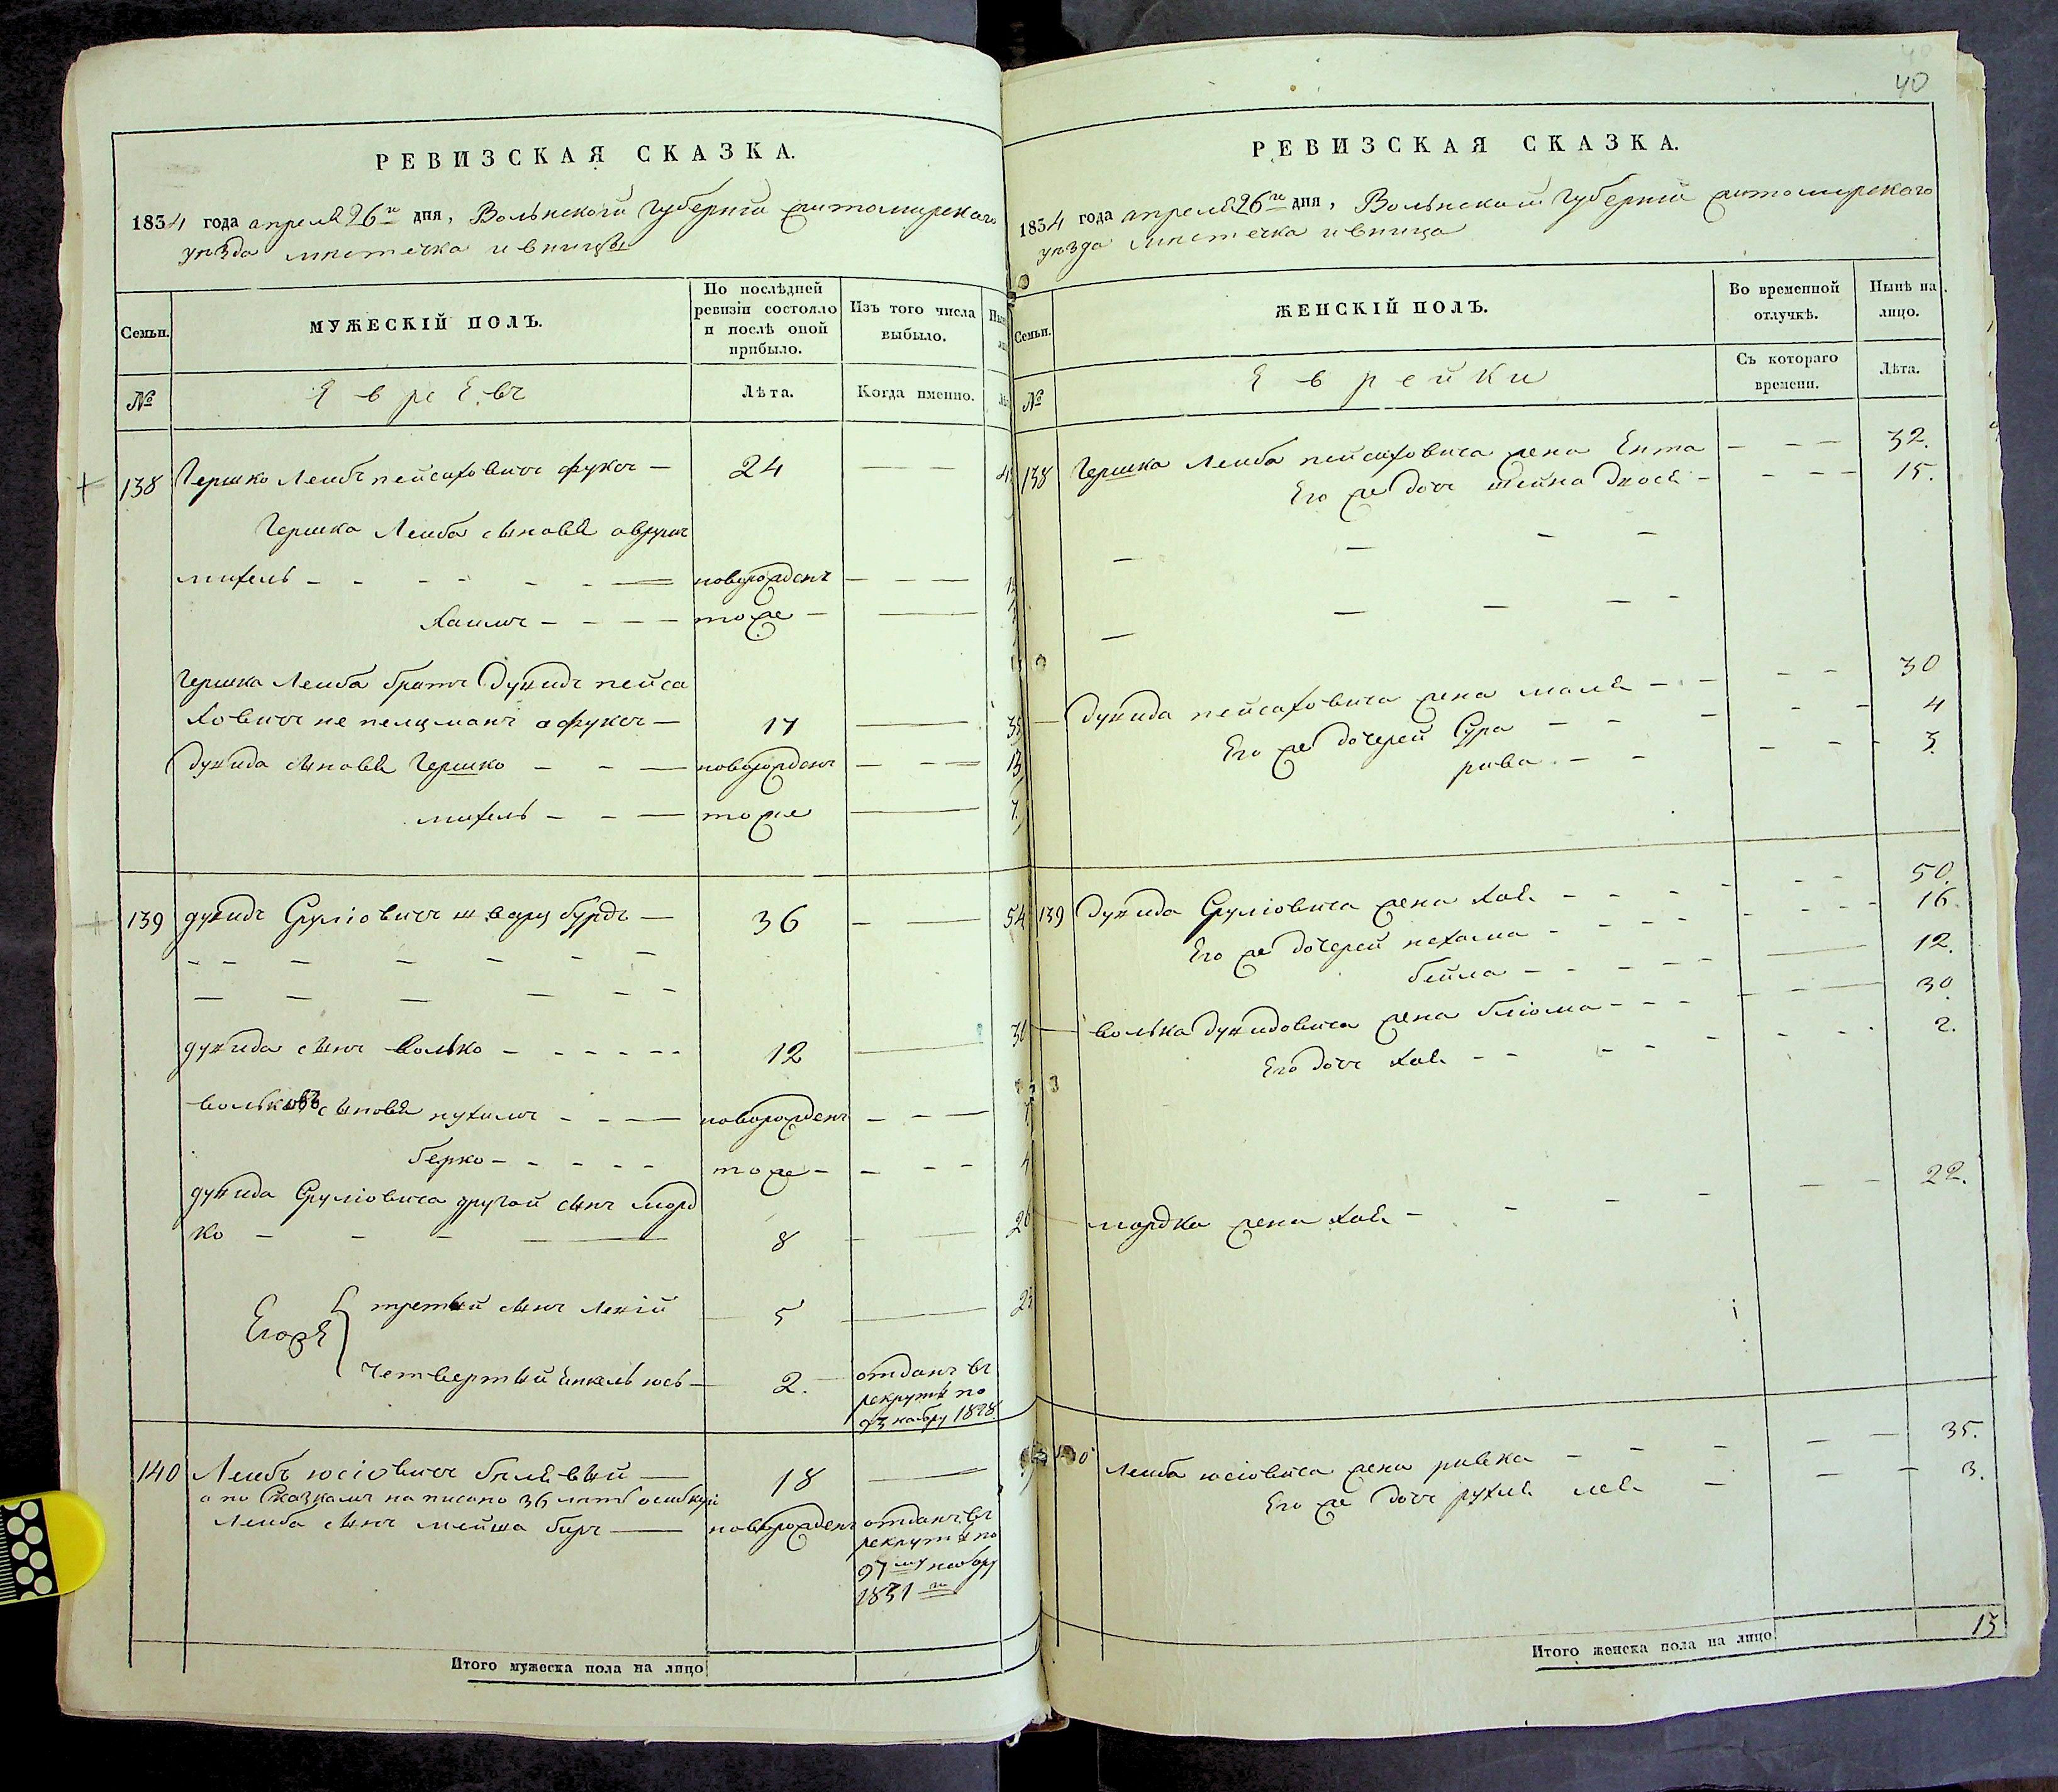 РЕВИЗСКАЯ СКАЗКА.
1834 года апреля 26го дня, Волынской Губернии Житомирского
уезда местечка Ивницы
Семьи.
МУЖЕСКІЙ ПОЛЪ.
По послѣдней ревизіи состояло и послѣ оной прибыло.
Изъ того числа выбыло.
№
Евреевъ
Лѣта.
Когда именно.
138 Гершко Лейбъ Пейсаховичъ Фуксъ — 24 —
Гершка Лейба сыновя
михель — новорожденъ —
Хаимъ — тоже —
Гершка Лейба братъ Дувидъ Пейса
ховичъ не пелцманъ а Фуксъ — 17 —
Дувида сыновя Гершко — новорожденъ — 13
михель — тоже — 7.
139 дувидъ Сруліовичъ шварцбурдъ — 36 — 54
дувида сынъ волько — 12 —
волька сыновя нухимъ — новорожденъ —
берко — тоже —
дувида Сруліовича другой сынъ морд
ко — 8 — 26
Егожъ третый сынъ — 5 —
четвертый юсь — 2. отданъ въ
рекруты по
93 набру 1828
140 Лейбъ юсіовичъ билявый — 18 —
а по Сказкамъ написано 36 летъ ошибкой
Лейба сынъ мейша беръ — новорожденъ отданъ въ
рекруты по
97му набору
1831го
Итого мужеска пола на лицо
40
РЕВИЗСКАЯ СКАЗКА.
1834 года апреля 26го дня, Волынской Губернии Житомирского
уезда местечка Ивница
Семьи.
ЖЕНСКІЙ ПОЛЪ.
Во временной отлучкѣ.
Нынѣ на лицо.
№
Еврейки
Съ котораго времени.
Лѣта.
138 Гершка Лейба пейсаховича жена Ента — 32.
Его же дочъ шейна Двося — 15.
Дувида пейсаховича жена маля — 30
Его же дочерей Сура — 4
рива — 3.
139 Дувида Сруліовича жена хая — 50.
Его же дочерей нехама — 16.
бейла — 12.
волька Дувидовича жена блюма — 30.
Его дочъ хая — 2.
мордка жена хая — 22.
140 Лейба юсіовича жена ривка — 35.
Его же дочъ рухля лея — 3.
Итого женска пола на лицо 13